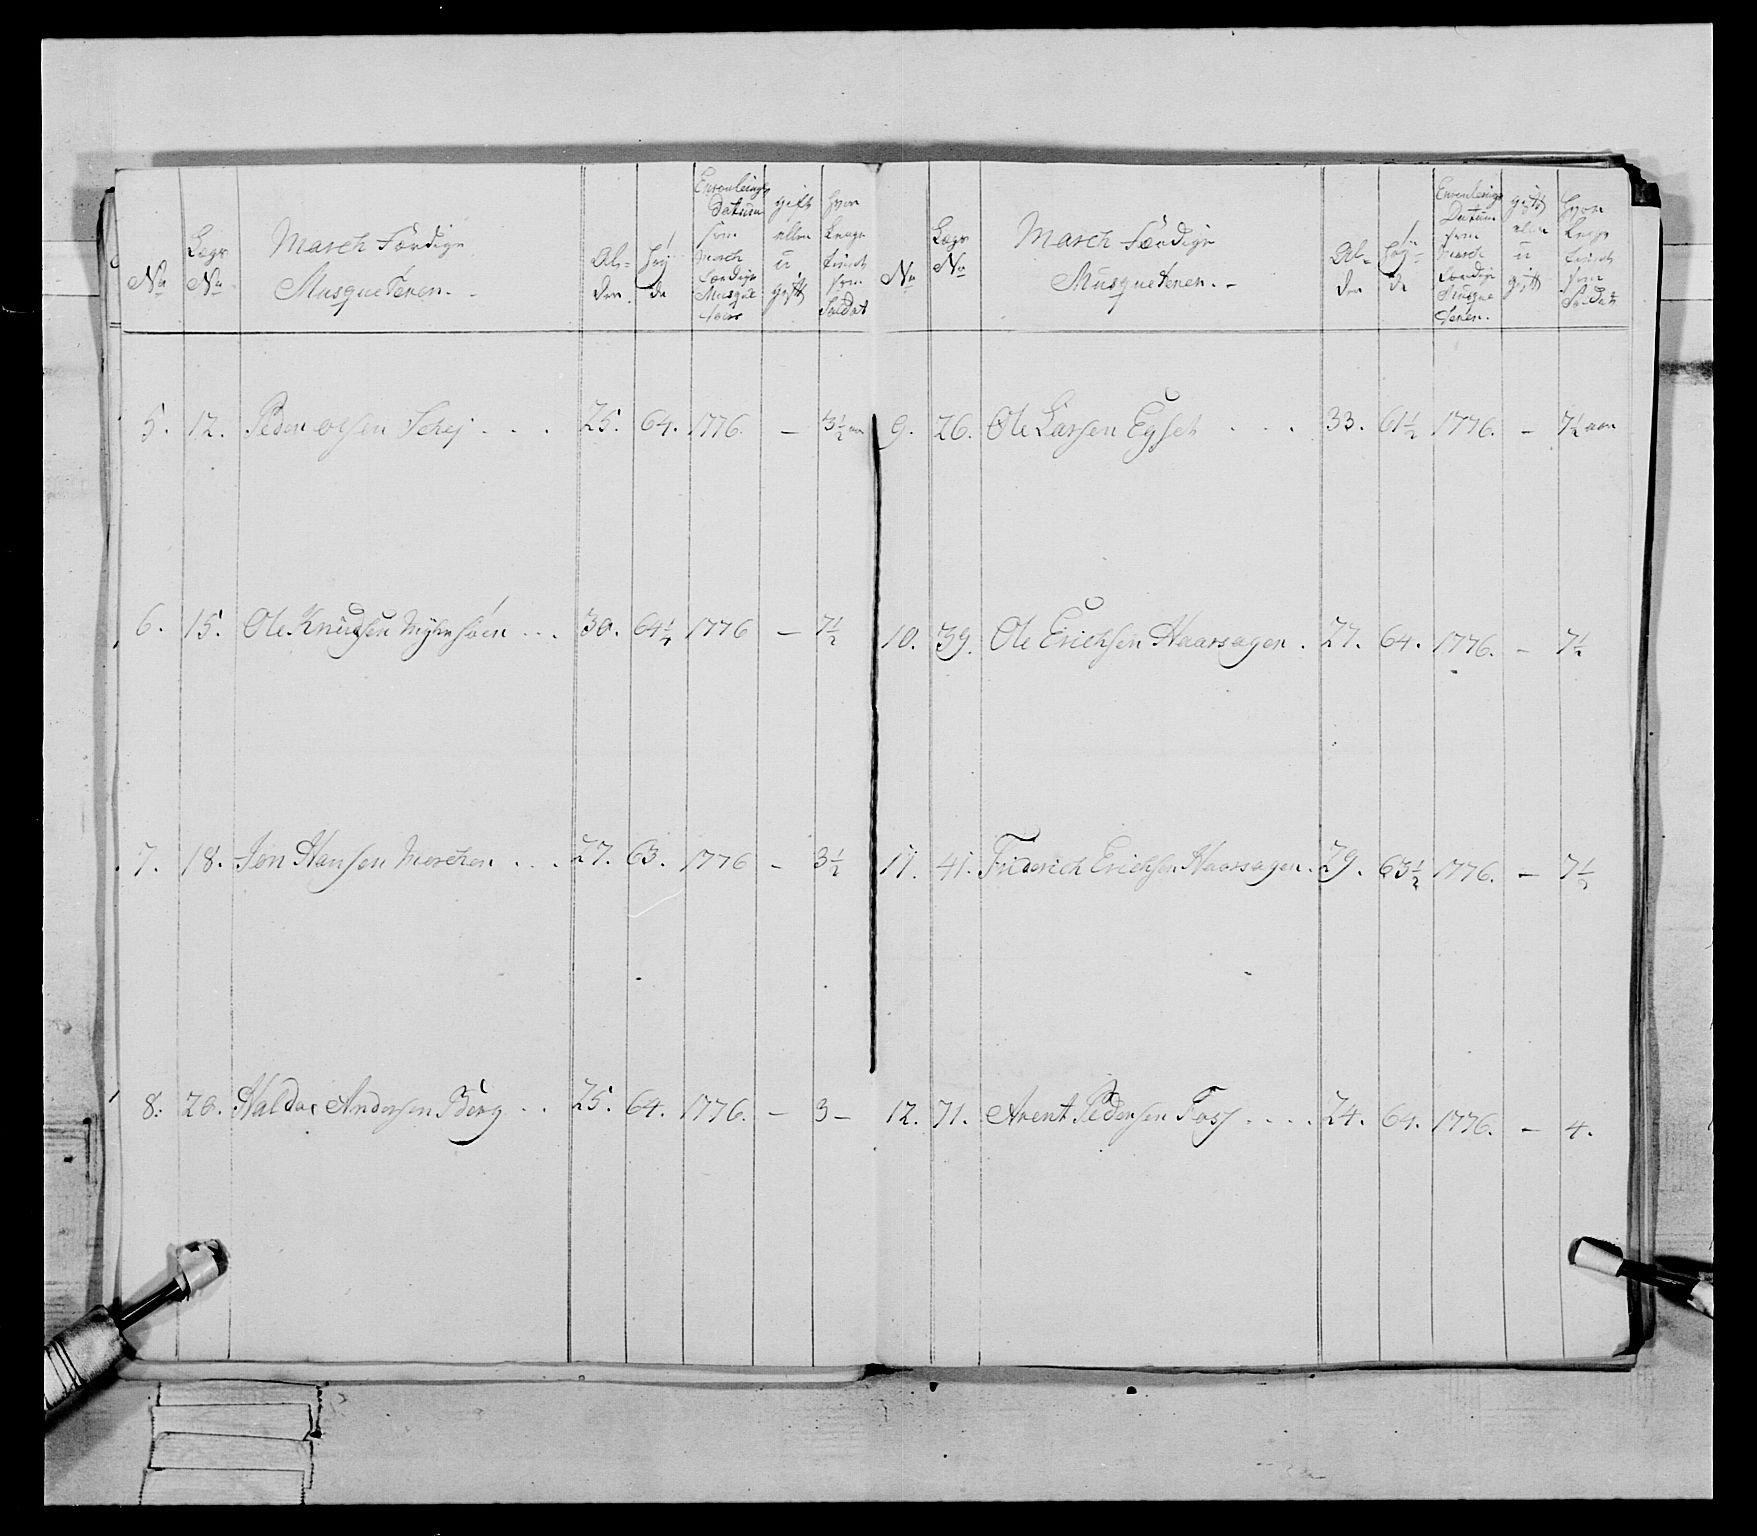 No
Lægs No
March Færdige Musqueterer.
Al-der.
Høy de
Enroulerings Datum som March Færdige Musqueteer
gift eller u gift
Hvor Lenge tient som Soldat
5. 12. Peder Olsen Schej . . . 25. 64. 1776. — 3½ aar
6. 15. Ole Knudsen Myhrsöen . . . 30. 64½ 1776 — 7½
7. 18. Jon Hansen Merchen . . . 27. 63. 1776 — 3½
8. 20. Haldor Andersen Berg . . 25. 64. 1776. — 3 —
No
Lægs No
March Færdige Musqueterer. —
Al-der
Høy-de
Enroulerings Datum som March Færdige Musqueterer.
gift eller u gift
Hvor Lenge tient som Soldat
9. 26. Ole Larsen Egset . . . 33. 61½ 1776. — 7½ aar
10. 39. Ole Erichsen Haarsagen . 27. 64. 1776. — 7½
11. 41. Friderich Erichsen Haarsagen . 29. 63½ 1776. — 7½
12. 71. Arent Pedersen Foss . . . . 24. 64. 1776. — 4.